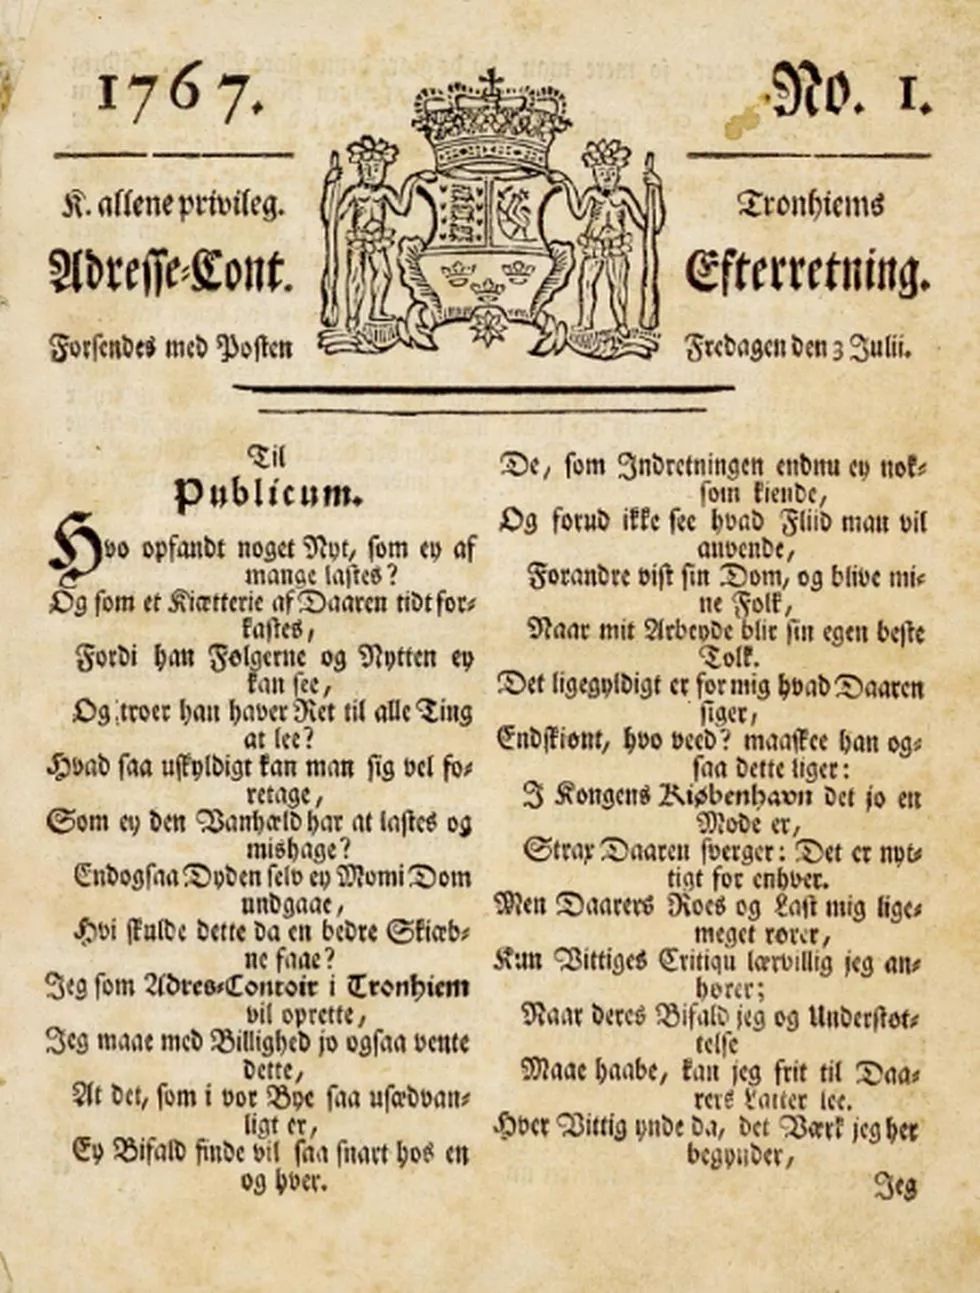 1767.
No. 1.
K. allene privileg.
Tronhiems
Adresse-Cont.
Efterretning.
Forsendes med Posten
Fredagen den 3 Julii.
Til
Publicum.
Hvo opfandt noget Nyt, som ey af
mange lastes?
Og som et Kiætterie af Daaren tidt for-
kastes,
Fordi han Følgerne og Nytten ey
kan see,
Og troer han haver Ret til alle Ting
at lee?
Hvad saa uskyldigt kan man sig vel fo-
retage,
Som ey den Vanhæld har at lastes og
mishage?
Endogsaa Dyden selv ey Momi Dom
undgaae,
Hvi skulde dette da en bedre Skiæb-
ne faae?
Jeg som Adres-Contoir i Tronhiem
vil oprette,
Jeg maae med Billighed jo ogsaa vente
dette,
At det, som i vor Bye saa usædvan-
ligt er,
Ey Bifald finde vil saa snart hos en
og hver.
De, som Indretningen endnu ey nok-
som kiende,
Og forud ikke see hvad Fliid man vil
anvende,
Forandre vist sin Dom, og blive mi-
ne Folk,
Naar mit Arbeyde blir sin egen beste
Tolk.
Det ligegyldigt er for mig hvad Daaren
siger,
Endskiønt, hvo veed? maaskee han og-
saa dette liger:
I Kongens Kiøbenhavn det jo en
Mode er,
Strax Daaren sværger: Det er nyt-
tigt for enhver.
Men Daarers Roes og Last mig lige-
meget rører,
Kun Vittiges Critiqu lærvillig jeg an-
hører;
Naar deres Bifald jeg og Understøt-
telse
Maae haabe, kan jeg frit til Daa-
rers Latter lee.
Hver Vittig ynde da, det Værk jeg her
begynder,
Jeg